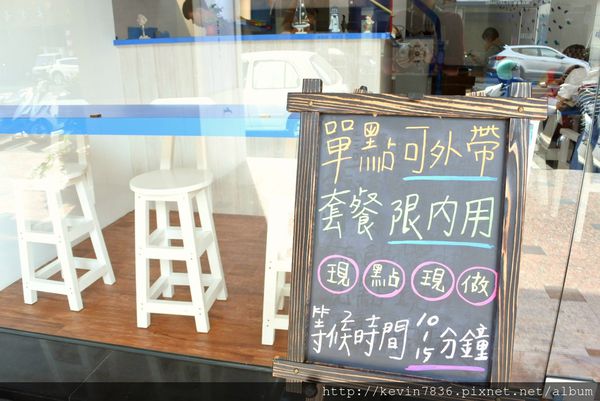 單點可外帶
套餐限內用
現點現做
等候時間10~15分鐘
http://kevin7836.pixnet.net/album